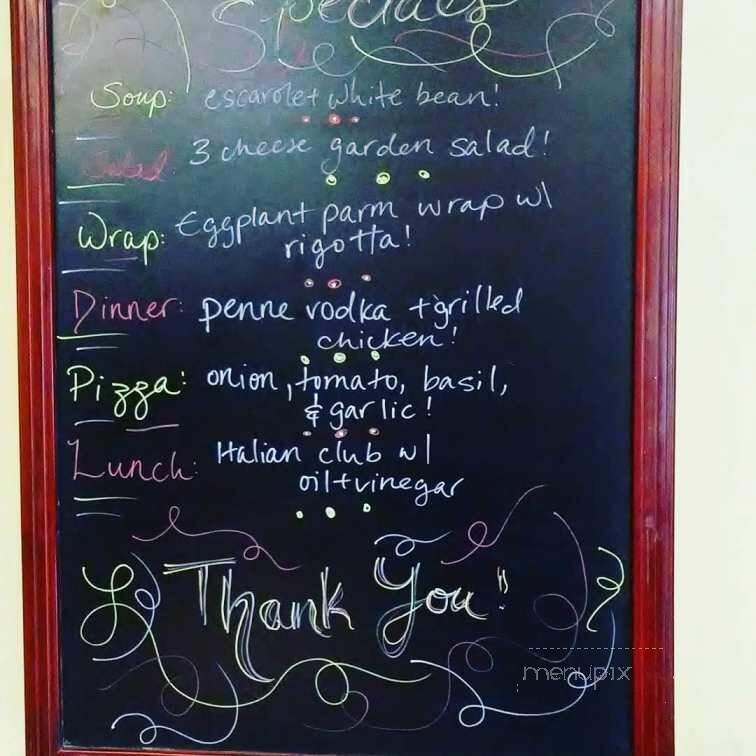 Specials
Soup: escarole + white bean!
Salad 3 cheese garden salad!
Wrap: Eggplant parm wrap w/
rigotta!
Dinner: penne vodka + grilled
chicken!
Pizza: onion, tomato, basil,
& garlic!
Lunch: Italian club w/
oil + vinegar
Thank You!
menupix